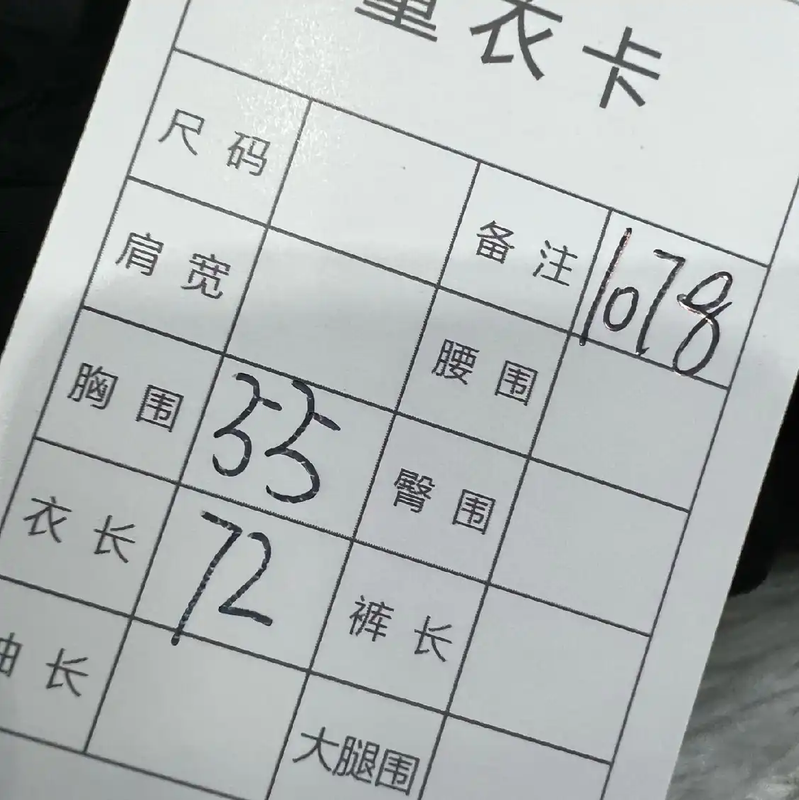 量衣卡
尺码
备注 1078
肩宽
腰围
胸围 55
臀围
衣长 72
裤长
袖长
大腿围